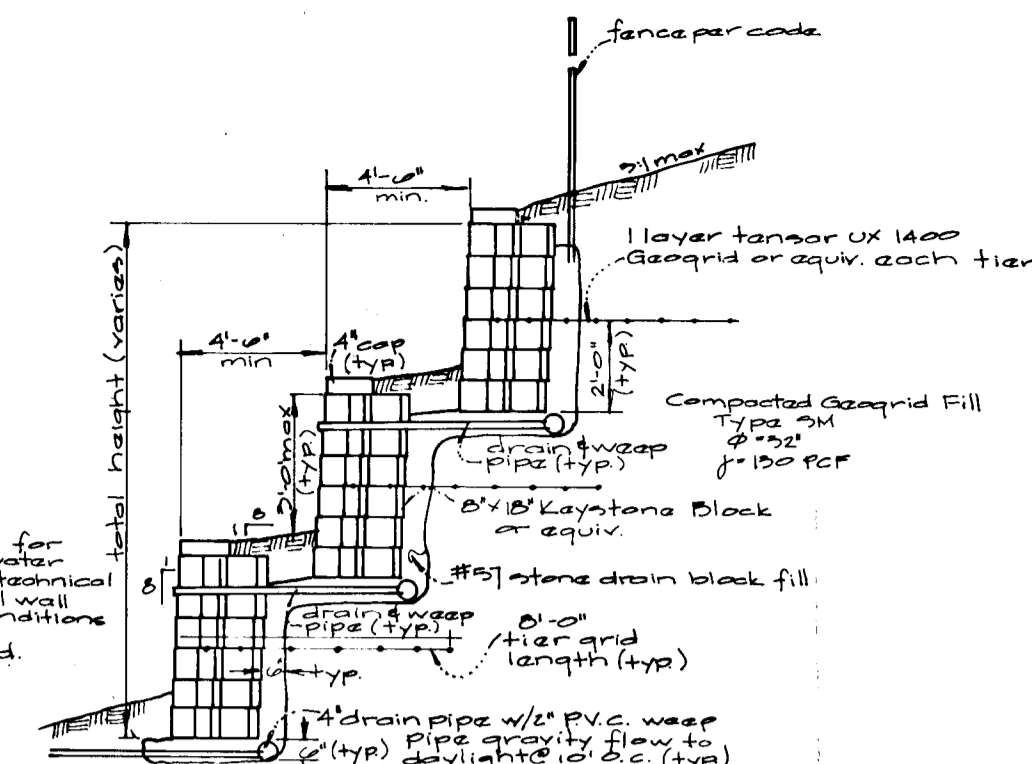 fence per code
3:1 max
4'-6"
min.
1 layer tensar UX 1400
Geogrid or equiv. each tier
total height (varies)
4'-6"
min
4" cap
(typ)
2'-0"
(typ.)
Compacted Geogrid Fill
Type SM
φ=32°
γ=130 PCF
3'-0" max
(typ.)
drain & weep
pipe (typ.)
8"x18" Keystone Block
or equiv.
1
8
for
water
technical
wall
#57 stone drain block fill
1
8
drain & weep
pipe (typ.)
8'-0"
tier grid
length (typ.)
d.
6" typ.
4" drain pipe w/2" P.V.C. weep
pipe gravity flow to
daylight @ 10' O.C. (typ)
6" (typ.)